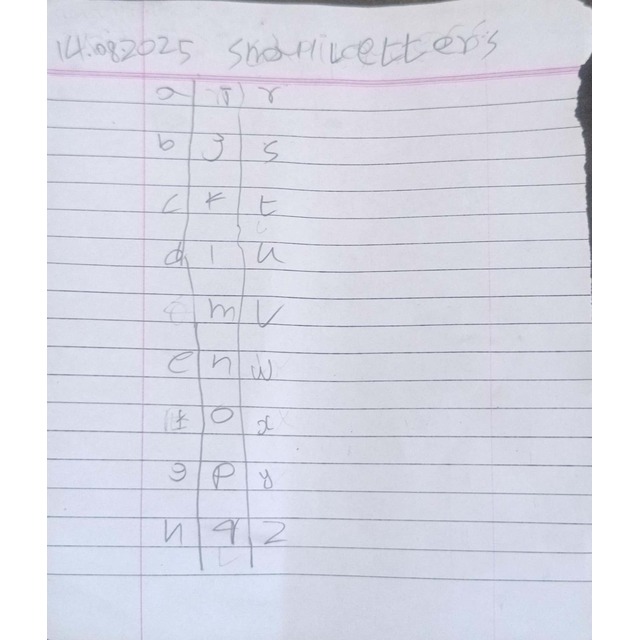 14.08.2025 Small Letters
a i r
b j s
c k t
d l u
m v
e n w
f o x
g p y
h q z